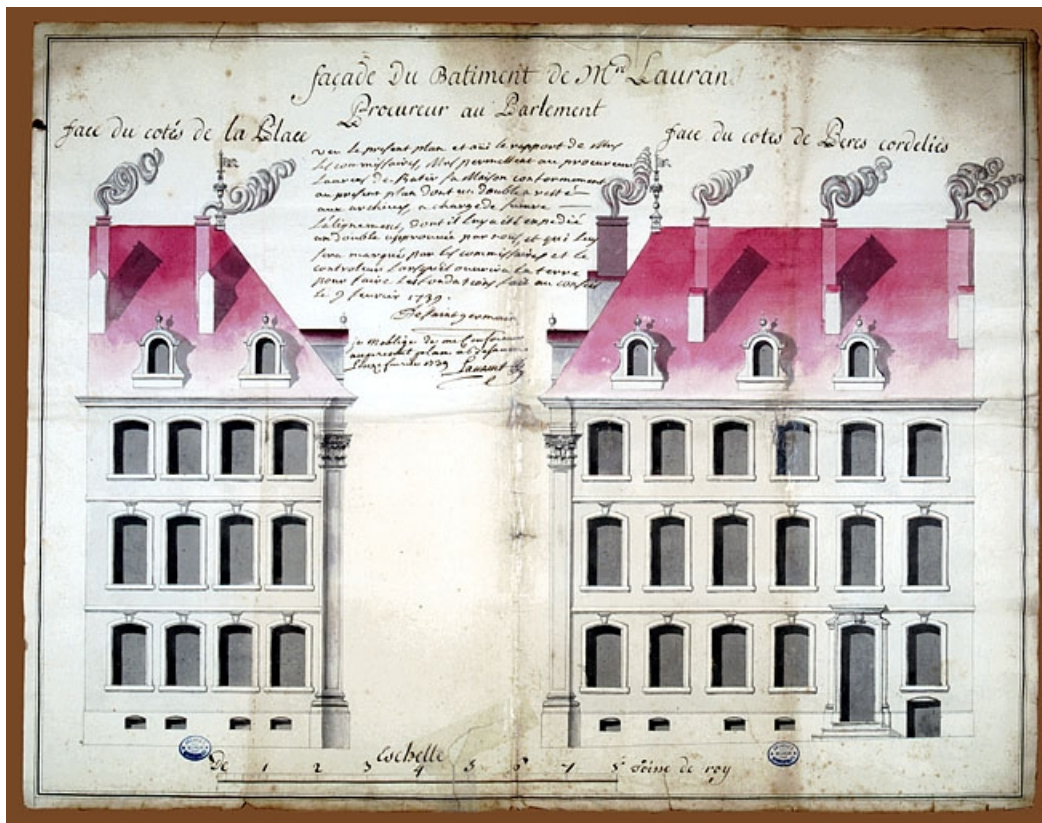 façade Du Batiment de Mr Lauran
Procureur au Parlement
face du cotés de la Place
face du cotés de Peres cordeliés
veu le present plan et oui le rapport de Mrs
les commissaires, Mrs permettent au procureur
Laurens de Batir sa Maison conformement
au present plan dont un double a resté
aux archives, a charge de suivre
l'alignement, dont il luy a été expedié
un double approuvé par nous, et qui luy
sera marqué par les commissaires et le
controleur lorsqu'il ouvrira la terre
pour faire les fondations fait au conseil
le 9 fevrier 1739.
De saint germain
je moblige de me conformer
au present plan
fevrier 1739 Laurent
Eschelle
De 1 2 3 4 5 6 7 8 Toise de roy